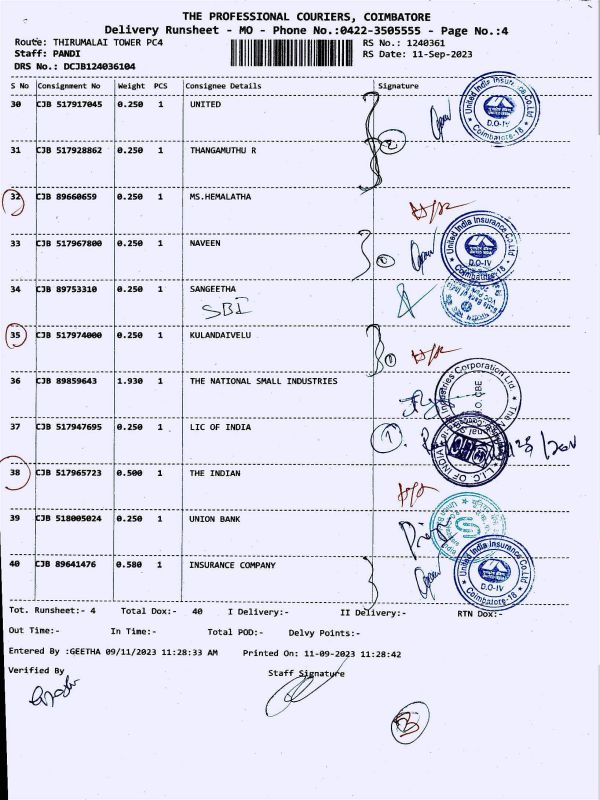 THE PROFESSIONAL COURIERS, COIMBATORE
Delivery Runsheet - MO - Phone No.:0422-3505555 - Page No.:4
Route: THIRUMALAI TOWER PC4 RS No.: 1240361
Staff: PANDI RS Date: 11-Sep-2023
DRS No.: DCJB124036104
S No Consignment No Weight PCS Consignee Details Signature
30 CJB 517917045 0.250 1 UNITED
United India Insurance.Co.Ltd
D.O-IV
Coimbatore-18
31 CJB 517928862 0.250 1 THANGAMUTHU R
32 CJB 89660659 0.250 1 MS.HEMALATHA
33 CJB 517967800 0.250 1 NAVEEN
United India Insurance.Co.Ltd
D.O-IV
Coimbatore-18
34 CJB 89753310 0.250 1 SANGEETHA
SBI
35 CJB 517974000 0.250 1 KULANDAIVELU
36 CJB 89859643 1.930 1 THE NATIONAL SMALL INDUSTRIES
Industries Corporation Ltd.
37 CJB 517947695 0.250 1 LIC OF INDIA
1
L.I.C. OF INDIA
38 CJB 517965723 0.500 1 THE INDIAN
39 CJB 518005024 0.250 1 UNION BANK
40 CJB 89641476 0.580 1 INSURANCE COMPANY
United India Insurance.Co.Ltd
D.O-IV
Coimbatore-18
Tot. Runsheet:- 4 Total Dox:- 40 I Delivery:- II Delivery:- RTN Dox:-
Out Time:- In Time:- Total POD:- Delvy Points:-
Entered By :GEETHA 09/11/2023 11:28:33 AM Printed On: 11-09-2023 11:28:42
Verified By Staff Signature